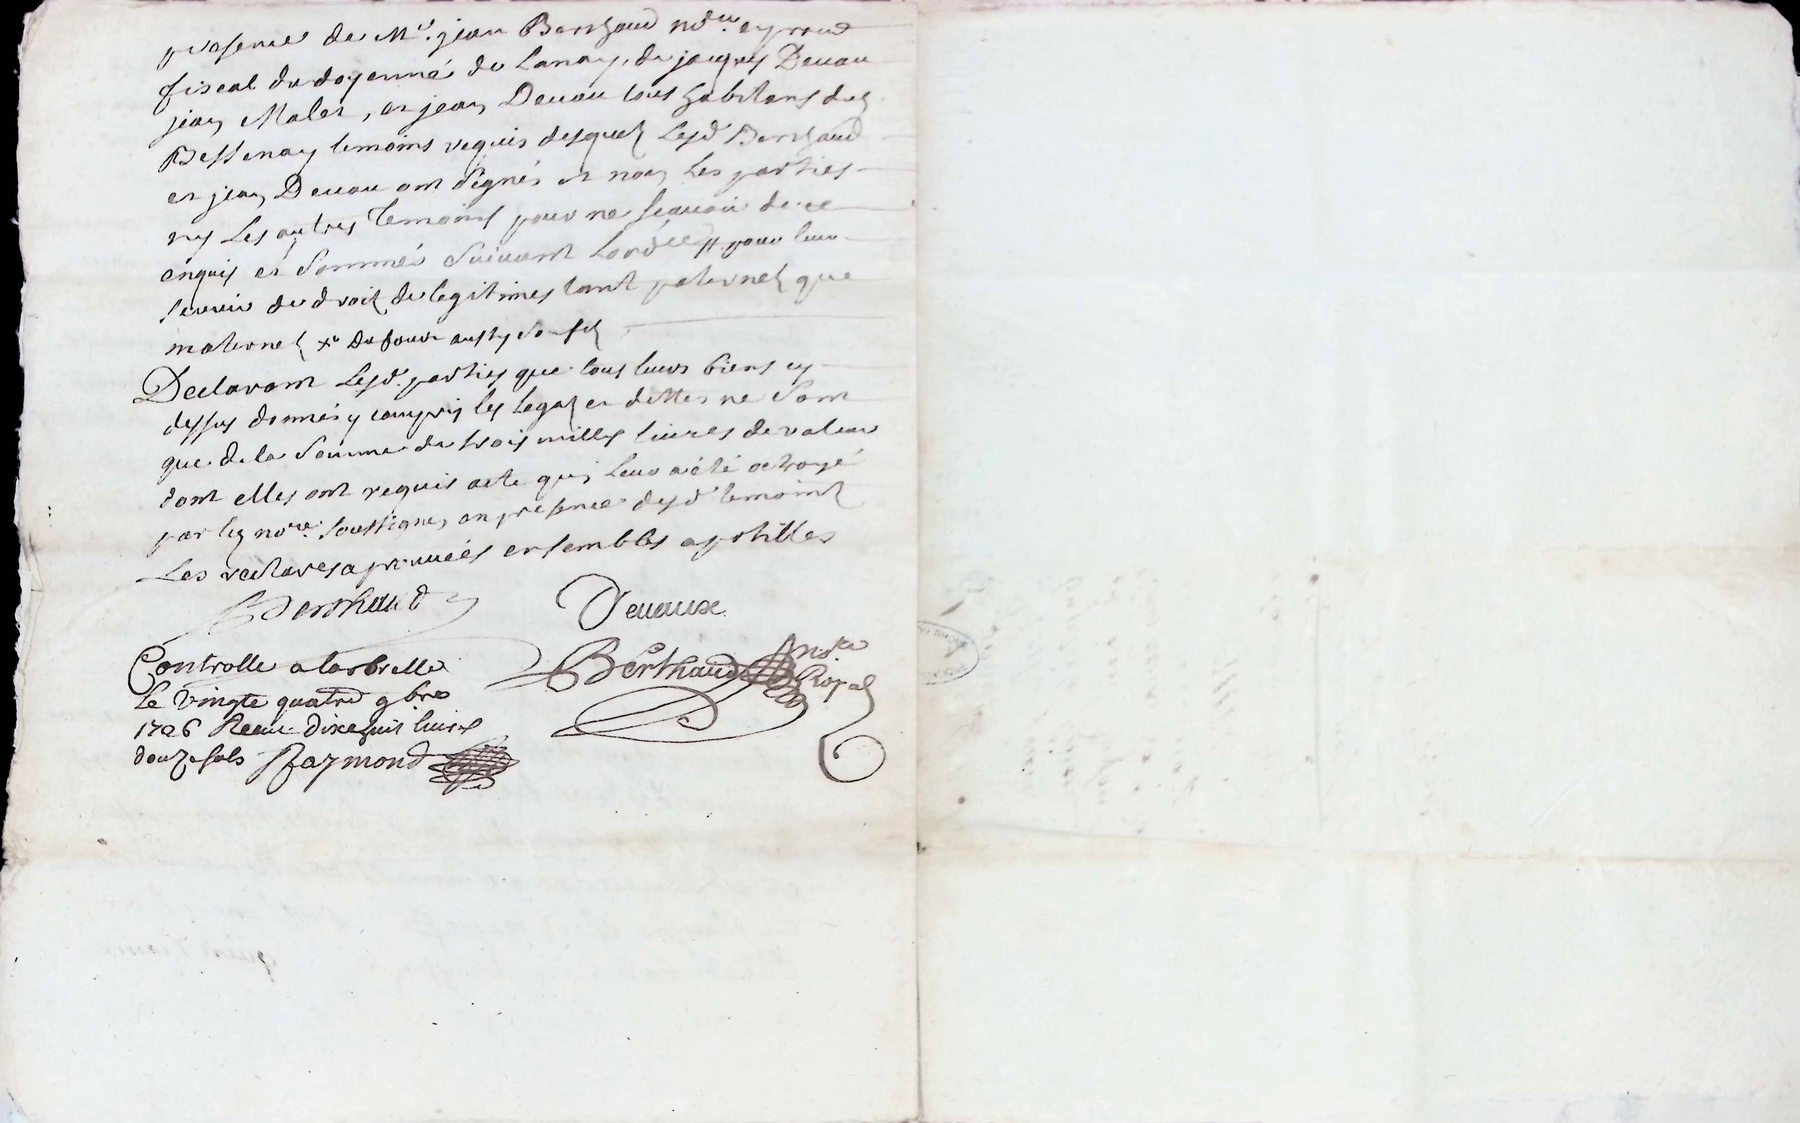 presence de Mᵉ. jean Berthaud nore. et proc
fiscal du doyenné de Lanay, de jacques Deuau
jean Malet, et jean Deuau tous habitans dud
Bessenay temoins requis desquels Lesd Berthaud
et jean Deuau ont signés et non Les parties
ny Les autres temoins pour ne sçauoir de ce
enquis et sommés suiuant Lordce # pour leur
seruir de droit de legitimes tant paternel que
maternel
Declarant Lesd. parties que tous leurs biens cy
dessus donnés y compris les Legats et dettes ne sont
que de la somme de trois milles liures de valeur
dont elles ont requis acte qui Leur a été octroyé
par led nore. soussigné, en presence desd temoins
Les ratures aprouuées ensembles apostilles
Berthaud Deuaux
Controlle a larbrelle Berthaud Nre
Le vingte quatre 9bre Royal
1726 Receu dixehuit liures
douze sols Raymond